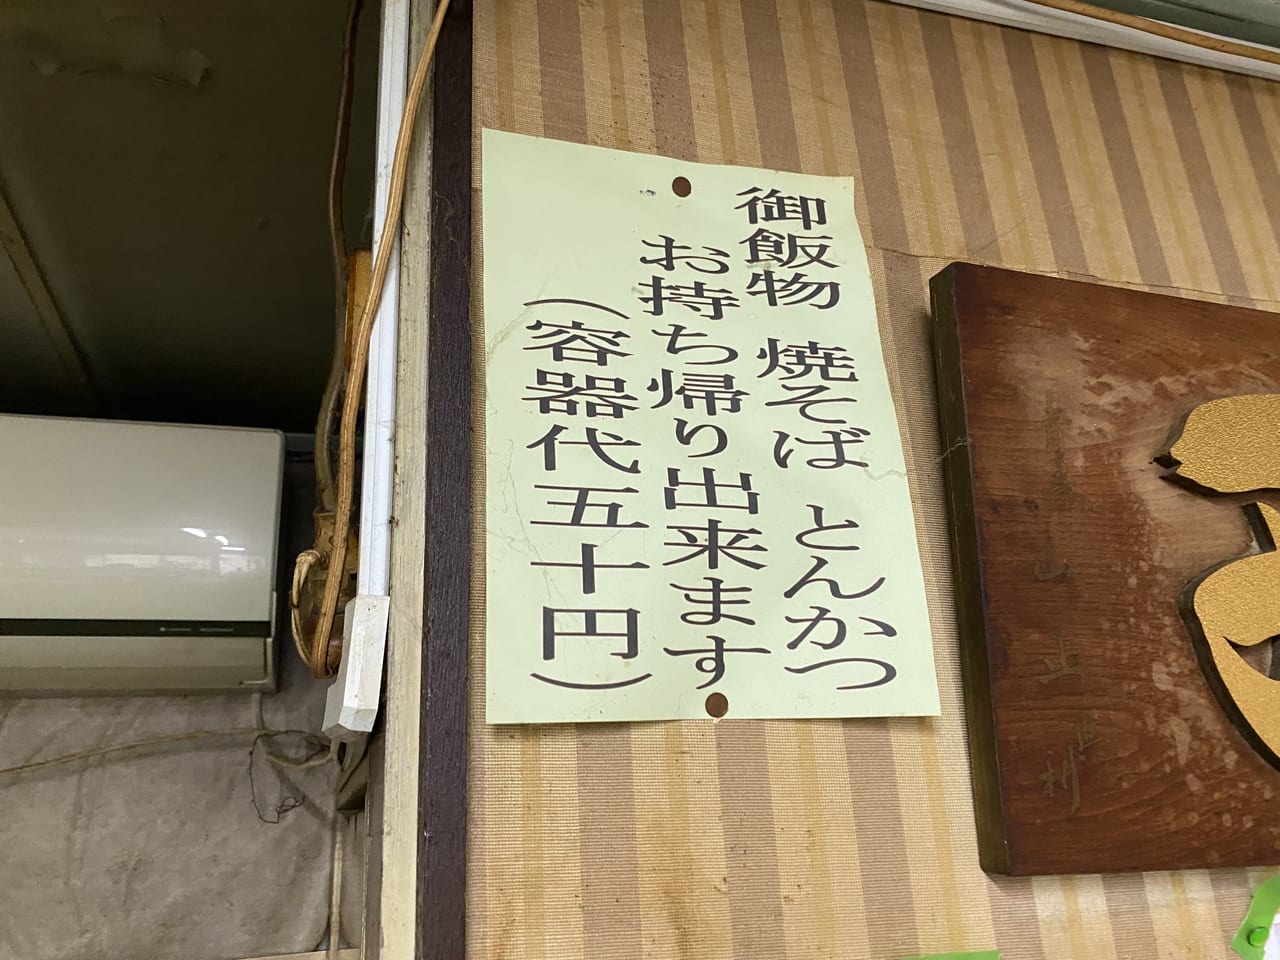 御飯物　焼そば　とんかつ
お持ち帰り出来ます
（容器代五十円）